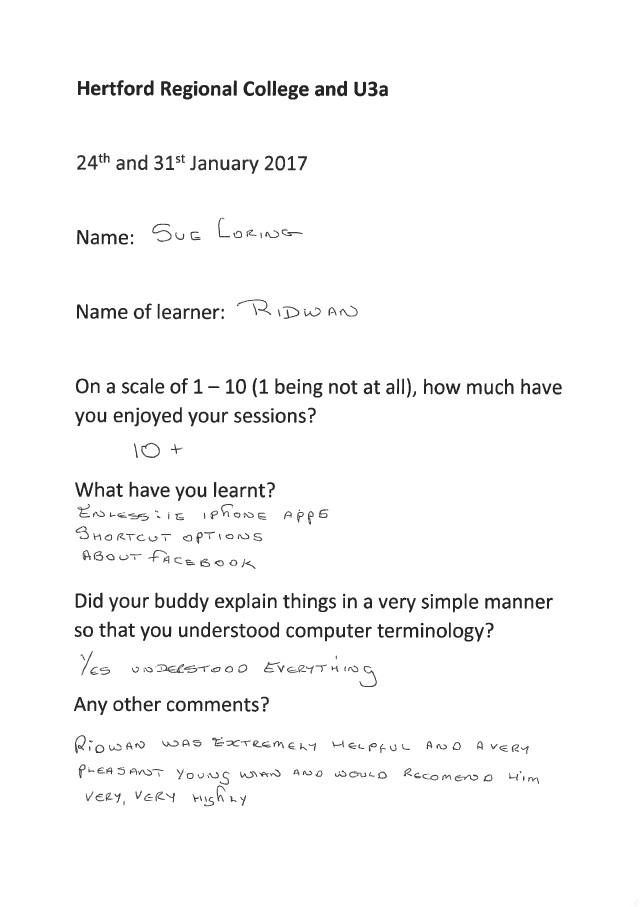 Hertford Regional College and U3a
24th and 31st January 2017
Name: SUE LORING
Name of learner: RIDWAN
On a scale of 1 – 10 (1 being not at all), how much have
you enjoyed your sessions?
10 +
What have you learnt?
ENLESS : IE IPHONE APPS
SHORTCUT OPTIONS
ABOUT FACEBOOK
Did your buddy explain things in a very simple manner
so that you understood computer terminology?
YES UNDERSTOOD EVERYTHING
Any other comments?
RIDWAN WAS EXTREMELY HELPFUL AND A VERY
PLEASANT YOUNG MAN AND WOULD RECOMEND HIM
VERY, VERY HIGHLY